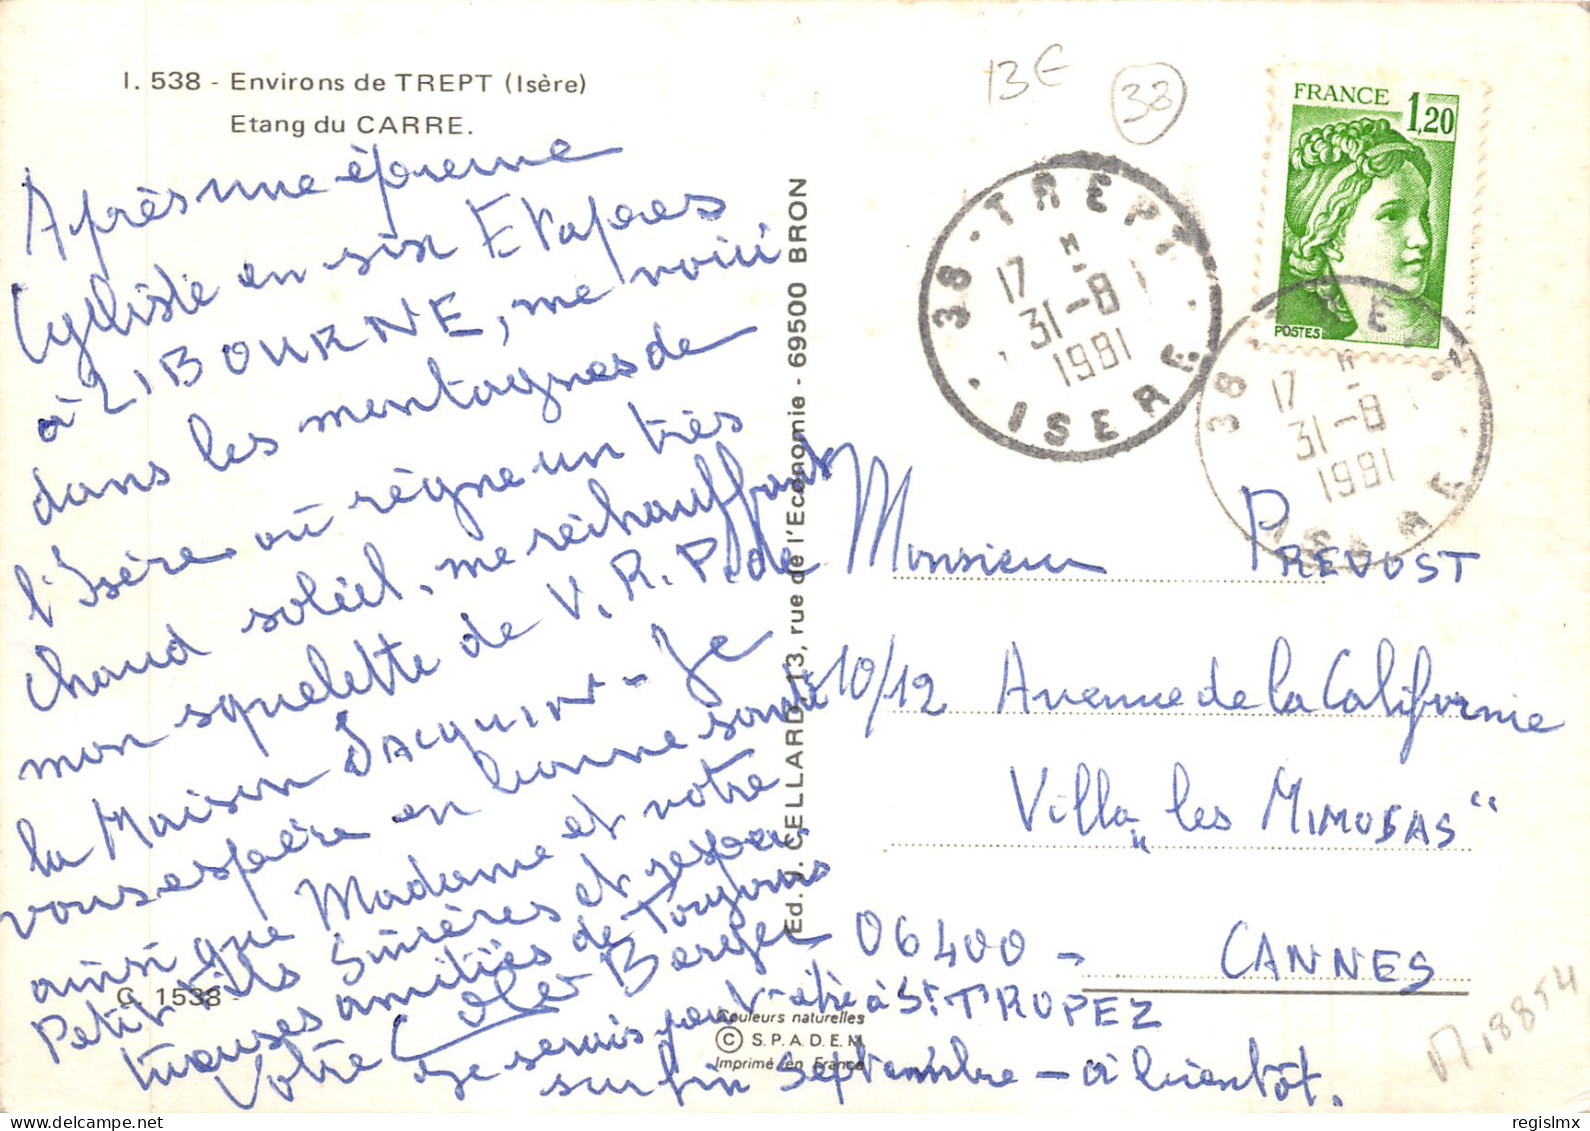 I. 538 - Environs de TREPT (Isère)
Etang du CARRE.
13€
38
FRANCE
1,20
POSTES
38 - TREPT
17 H
31-8
1981
ISERE
38 TREPT
17 H
31-8
1981
ISERE
Après une épreuve
Cycliste en six Etapes
à LIBOURNE, me voici
dans les montagnes de
l'Isère où règne un très
chaud soleil, me réchauffant
mon squelette de V.R.P. de
la Maison JACQUIN - Je
vous espère en bonne santé
ainsi que Madame et votre
Petit Fils Sincères et respec-
tueuses amitiés de Toujours
Votre Berger
Je serais peut-être à St TROPEZ
sur fin Septembre - à bientôt.
Ed. J. CELLARD, 13, rue de l'Economie - 69500 BRON
Monsieur PREVOST
10/12 Avenue de la Californie
Villa „les MIMOSAS"
06400 - CANNES
C 1538
Couleurs naturelles
© S.P.A.D.E.M.
Imprimé en France
18854
© regislmx